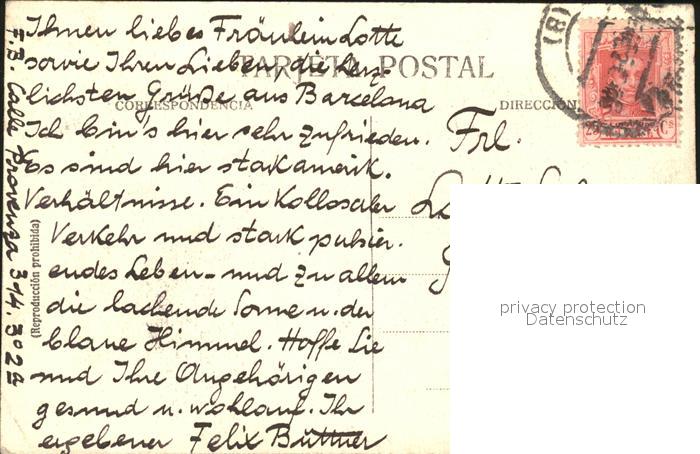 TARJETA POSTAL
CORRESPONDENCIA
DIRECCIÓN
Ihnen liebes Fräulein Lotte
sowie Ihren Lieben, die herz-
lichsten Grüße aus Barcelona
Ich bin's hier sehr zufrieden.
Es sind hier stak amerik.
Verhältnisse. Ein Kollosaler
Verkehr und stark pulsier.
endes Leben - und zu allem
die lachende Sonne u. der
blaue Himmel. Hoffe Sie
und Ihre Angehörigen
gesund u. wohlauf. Ihr
ergebener Felix Büttner
F.B. Calle Provenza 314. 3º 2ª
(Reproducción prohibida)
Frl.
(8)
25 Cs
privacy protection
Datenschutz